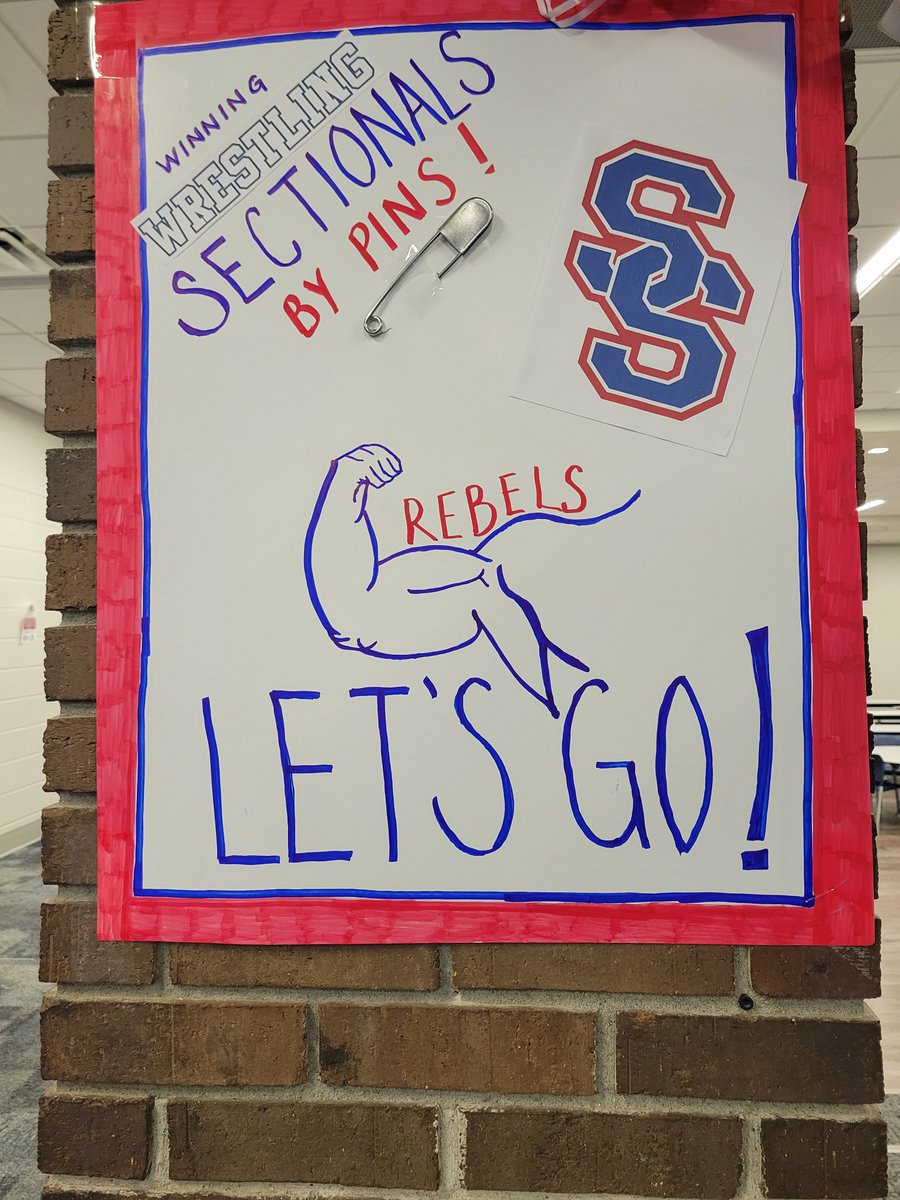 WINNING
WRESTLING
SECTIONALS
BY PINS!
SS
REBELS
LET'S GO!